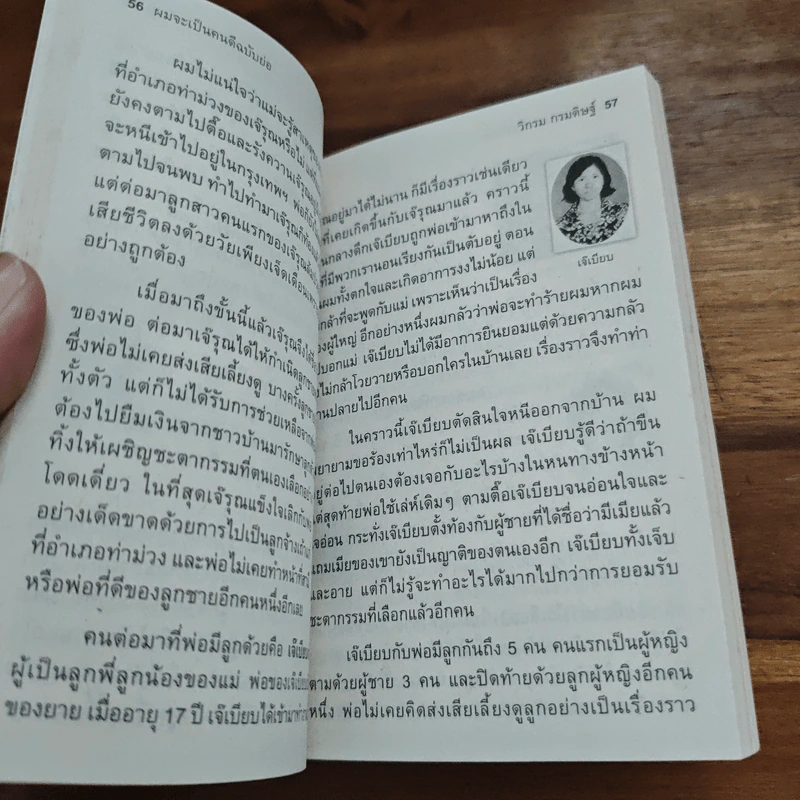 56 ผมจะเป็นคนดีฉบับย่อ
ผมไม่แน่ใจว่าแม่จะรู้
ที่อำเภอท่าม่วงของเจ๊รุณหรือไม่
ยังคงตามไปตื๊อและรังควานเจ๊รุณ
จะหนีเข้าไปอยู่ในกรุงเทพฯ พ่อก็
ตามไปจนพบ ทำไปทำมาเจ๊รุณก็
แต่ต่อมาลูกสาวคนแรกของเจ๊รุณ
เสียชีวิตลงด้วยวัยเพียงเจ็ดเดือน
อย่างถูกต้อง
เมื่อมาถึงขั้นนี้แล้วเจ๊รุณจึง
ของพ่อ ต่อมาเจ๊รุณได้ให้กำเนิดลูก
ซึ่งพ่อไม่เคยส่งเสียเลี้ยงดู บางครั้งลูก
ทั้งตัว แต่ก็ไม่ได้รับการช่วยเหลือจาก
ต้องไปยืมเงินจากชาวบ้านมารักษาลูก
ทิ้งให้เผชิญชะตากรรมที่ตนเองเลือก
โดดเดี่ยว ในที่สุดเจ๊รุณแข็งใจเลิกกับ
อย่างเด็ดขาดด้วยการไปเป็นลูกจ้าง
ที่อำเภอท่าม่วง และพ่อไม่เคยทำหน้าที่
หรือพ่อที่ดีของลูกชายอีกคนหนึ่งอีกเลย
คนต่อมาที่พ่อมีลูกด้วยคือ เจ๊เบียบ
ผู้เป็นลูกพี่ลูกน้องของแม่ พ่อของเจ๊เบียบ
ของยาย เมื่ออายุ 17 ปี เจ๊เบียบได้เข้ามา
วิกรม กรมดิษฐ์ 57
ณอยู่มาได้ไม่นาน ก็มีเรื่องราวเช่นเดียว
ที่เคยเกิดขึ้นกับเจ๊รุณมาแล้ว คราวนี้
นกลางดึกเจ๊เบียบถูกพ่อเข้ามาหาถึงใน
ที่มีพวกเรานอนเรียงกันเป็นตับอยู่ ตอน
ผมทั้งตกใจและเกิดอาการงงไม่น้อย แต่
กล้าที่จะพูดกับแม่ เพราะเห็นว่าเป็นเรื่อง
งผู้ใหญ่ อีกอย่างหนึ่งผมกลัวว่าพ่อจะทำร้ายผมหากผม
ปบอกแม่ เจ๊เบียบไม่ได้มีอาการยินยอมแต่ด้วยความกลัว
งไม่กล้าโวยวายหรือบอกใครในบ้านเลย เรื่องราวจึงทำท่า
านปลายไปอีกคน
เจ๊เบียบ
ในคราวนี้เจ๊เบียบตัดสินใจหนีออกจากบ้าน ผม
ยายามขอร้องเท่าไหร่ก็ไม่เป็นผล เจ๊เบียบรู้ดีว่าถ้าขืน
ยู่ต่อไปตนเองต้องเจอกับอะไรบ้างในหนทางข้างหน้า
ต่สุดท้ายพ่อใช้เล่ห์เดิมๆ ตามตื๊อเจ๊เบียบจนอ่อนใจและ
จอ่อน กระทั่งเจ๊เบียบตั้งท้องกับผู้ชายที่ได้ชื่อว่ามีเมียแล้ว
ถมเมียของเขายังเป็นญาติของตนเองอีก เจ๊เบียบทั้งเจ็บ
ละอาย แต่ก็ไม่รู้จะทำอะไรได้มากไปกว่าการยอมรับ
ชะตากรรมที่เลือกแล้วอีกคน
เจ๊เบียบกับพ่อมีลูกกันถึง 5 คน คนแรกเป็นผู้หญิง
ตามด้วยผู้ชาย 3 คน และปิดท้ายด้วยลูกผู้หญิงอีกคน
หนึ่ง พ่อไม่เคยคิดส่งเสียเลี้ยงดูลูกอย่างเป็นเรื่องราว